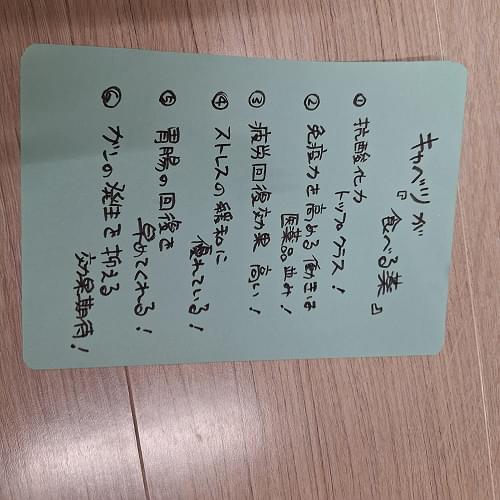 キャベツが
『食べる薬』
① 抗酸化力
トップクラス!
② 免疫力を高める働きは
医薬品並み!
③ 疲労回復効果 高い!
④ ストレスの緩和に
優れている!
⑤ 胃腸の回復を
早めてくれる!
⑥ ガンの発生を抑える
効果期待!